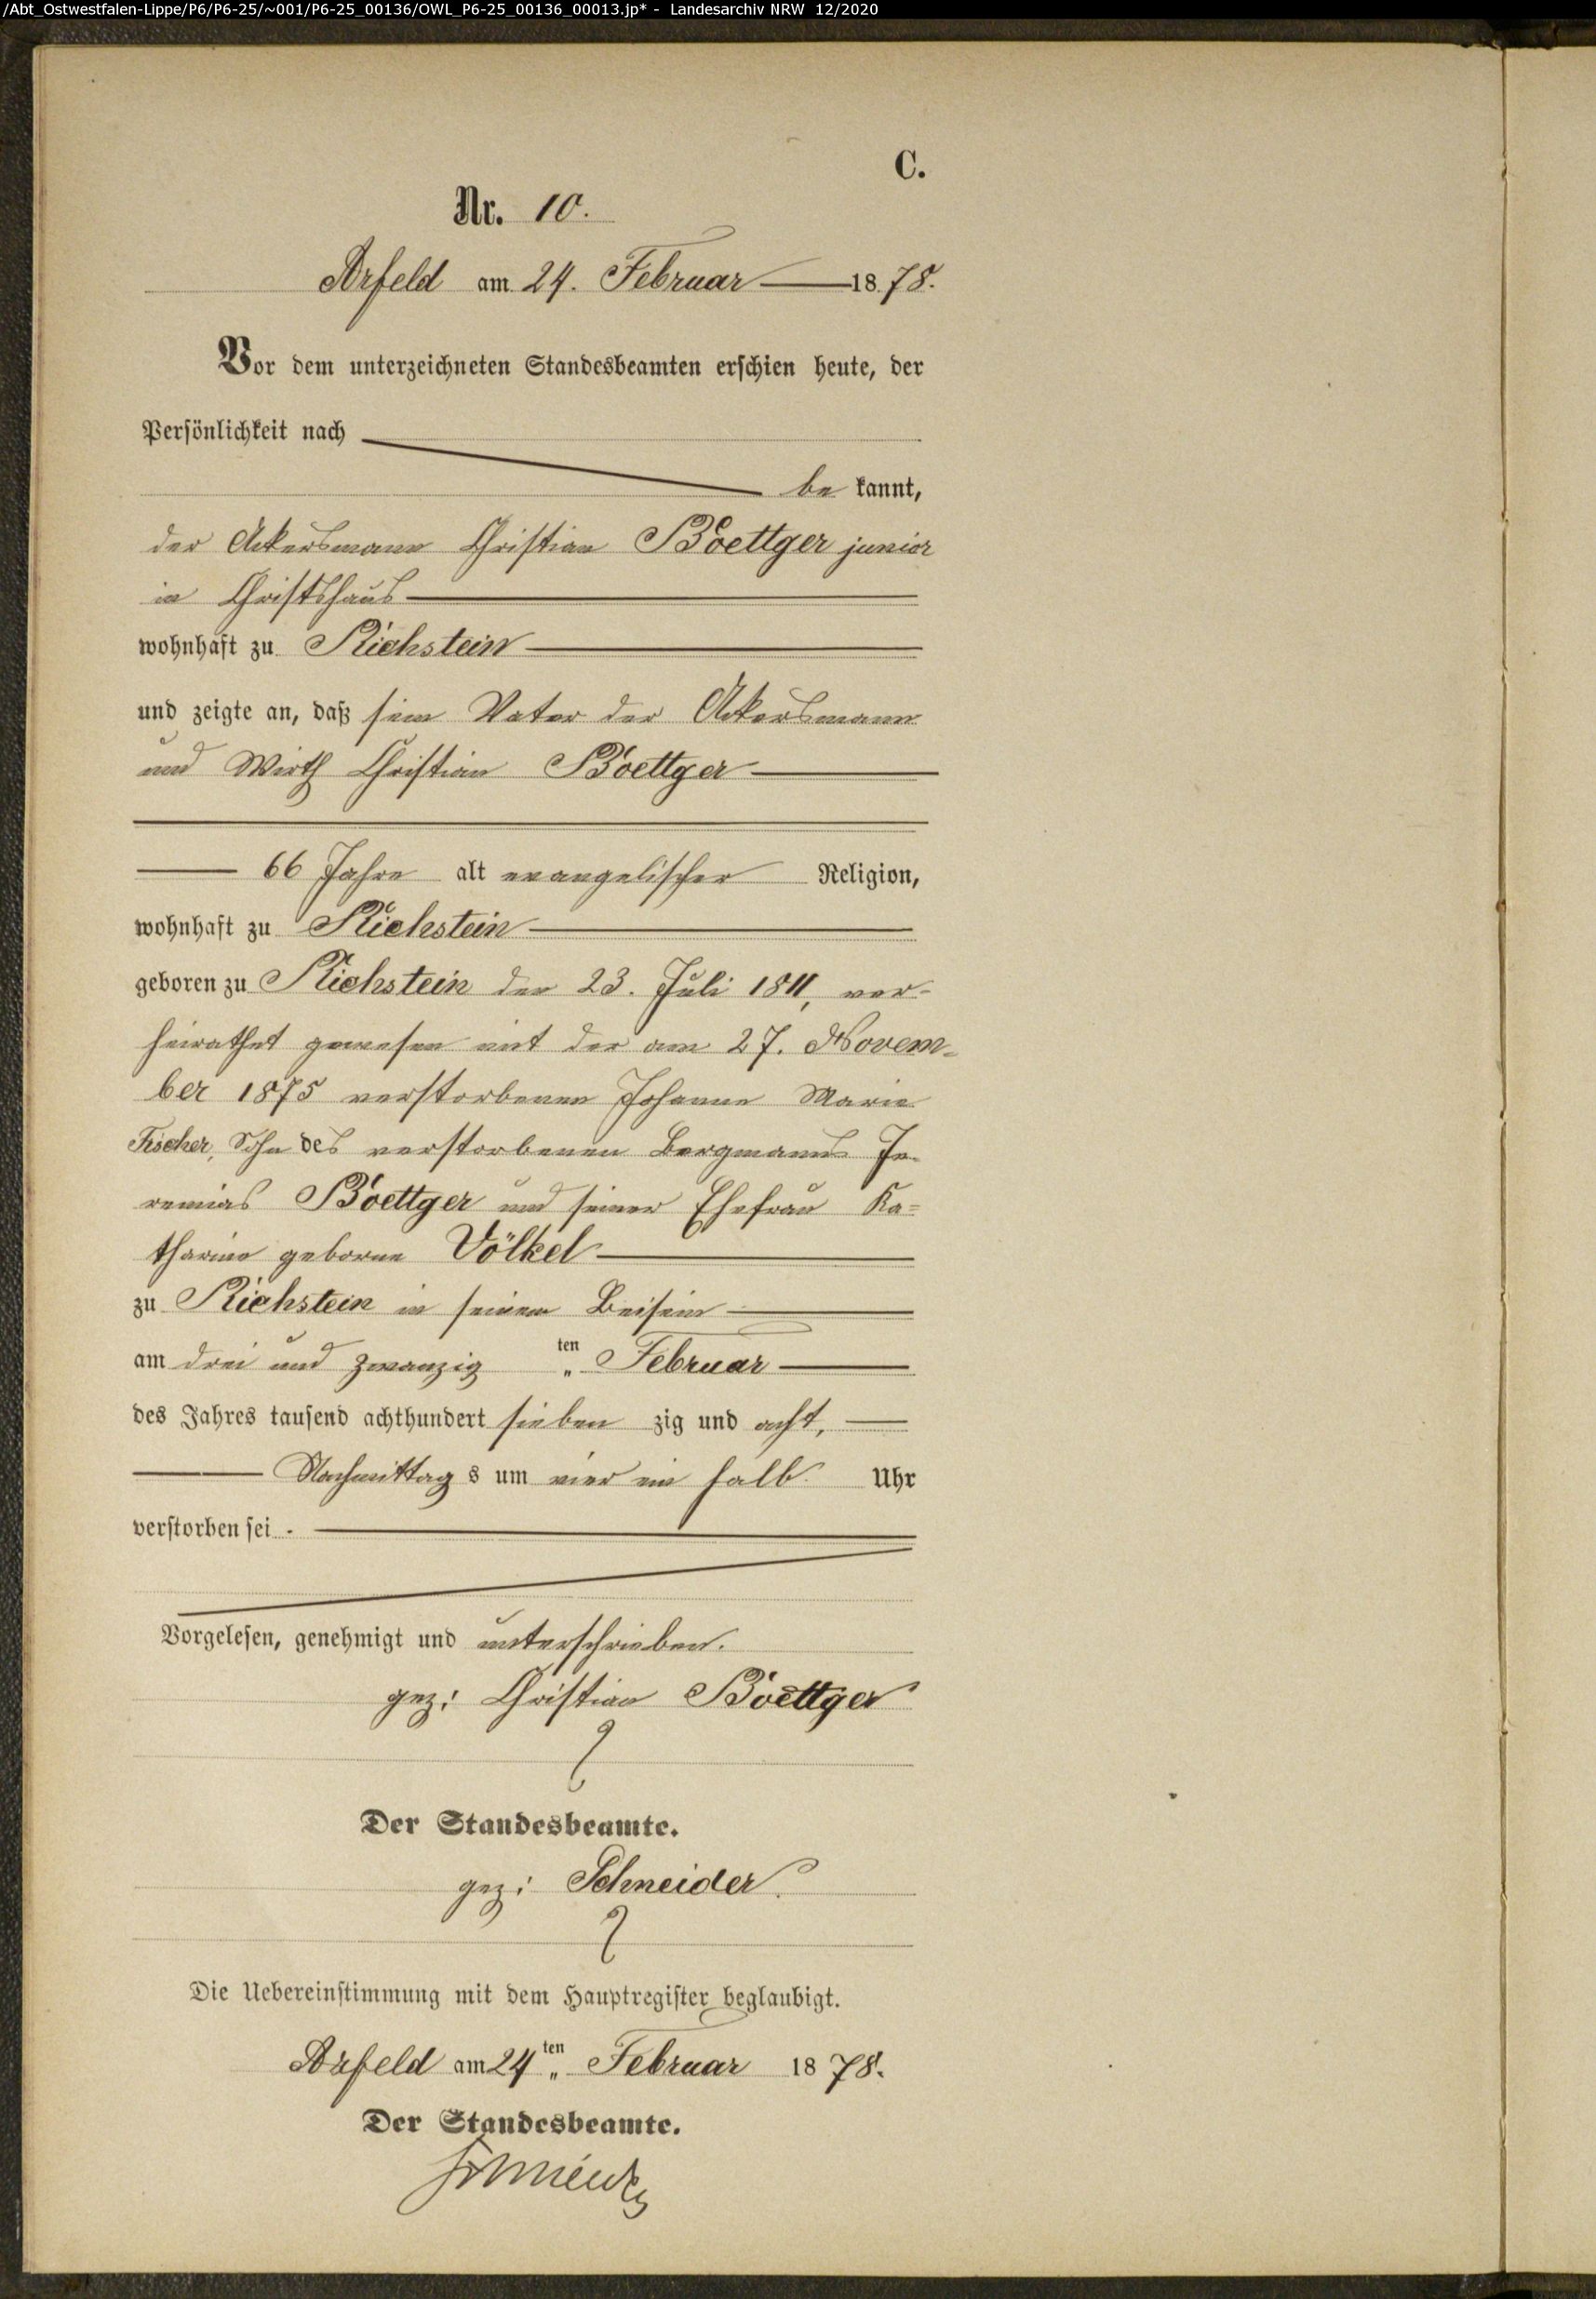 /Abt_Ostwestfalen-Lippe/P6/P6-25/~001/P6-25_00136/OWL_P6-25_00136_00013.jp* - Landesarchiv NRW 12/2020
C.
Nr. 10.
Arfeld am 24. Februar 1878.
Vor dem unterzeichneten Standesbeamten erschien heute, der
Persönlichkeit nach
be kannt,
der Ackersmann Christian Boettger junior
in Christshaus
wohnhaft zu Richstein
und zeigte an, daß sein Vater der Ackersmann
und Wirth Christian Boettger
66 Jahre alt evangelischer Religion,
wohnhaft zu Richstein
geboren zu Richstein den 23. Juli 1811, ver-
heirathet gewesen mit der am 27. Novem-
ber 1875 verstorbenen Johanne Marie
Fischer, Sohn des verstorbenen Bergmanns Je-
remias Boettger und seiner Ehefrau Ka=
tharine geborne Völkel
zu Richstein in seinem Beisein
am drei und zwanzig ten Februar
des Jahres tausend achthundert sieben zig und acht,
Nachmittag s um vier ein halb Uhr
verstorben sei.
Vorgelesen, genehmigt und unterschrieben.
gez: Christian Boettger
Der Standesbeamte.
gez: Schneider.
Die Uebereinstimmung mit dem Hauptregister beglaubigt.
Arfeld am 24 ten Februar 1878.
Der Standesbeamte.
Schneider